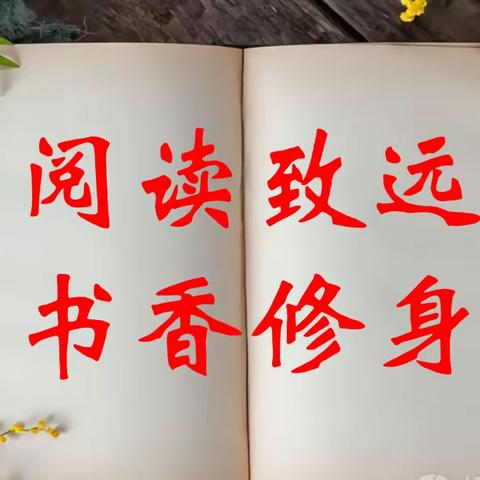 阅读致远
书香修身